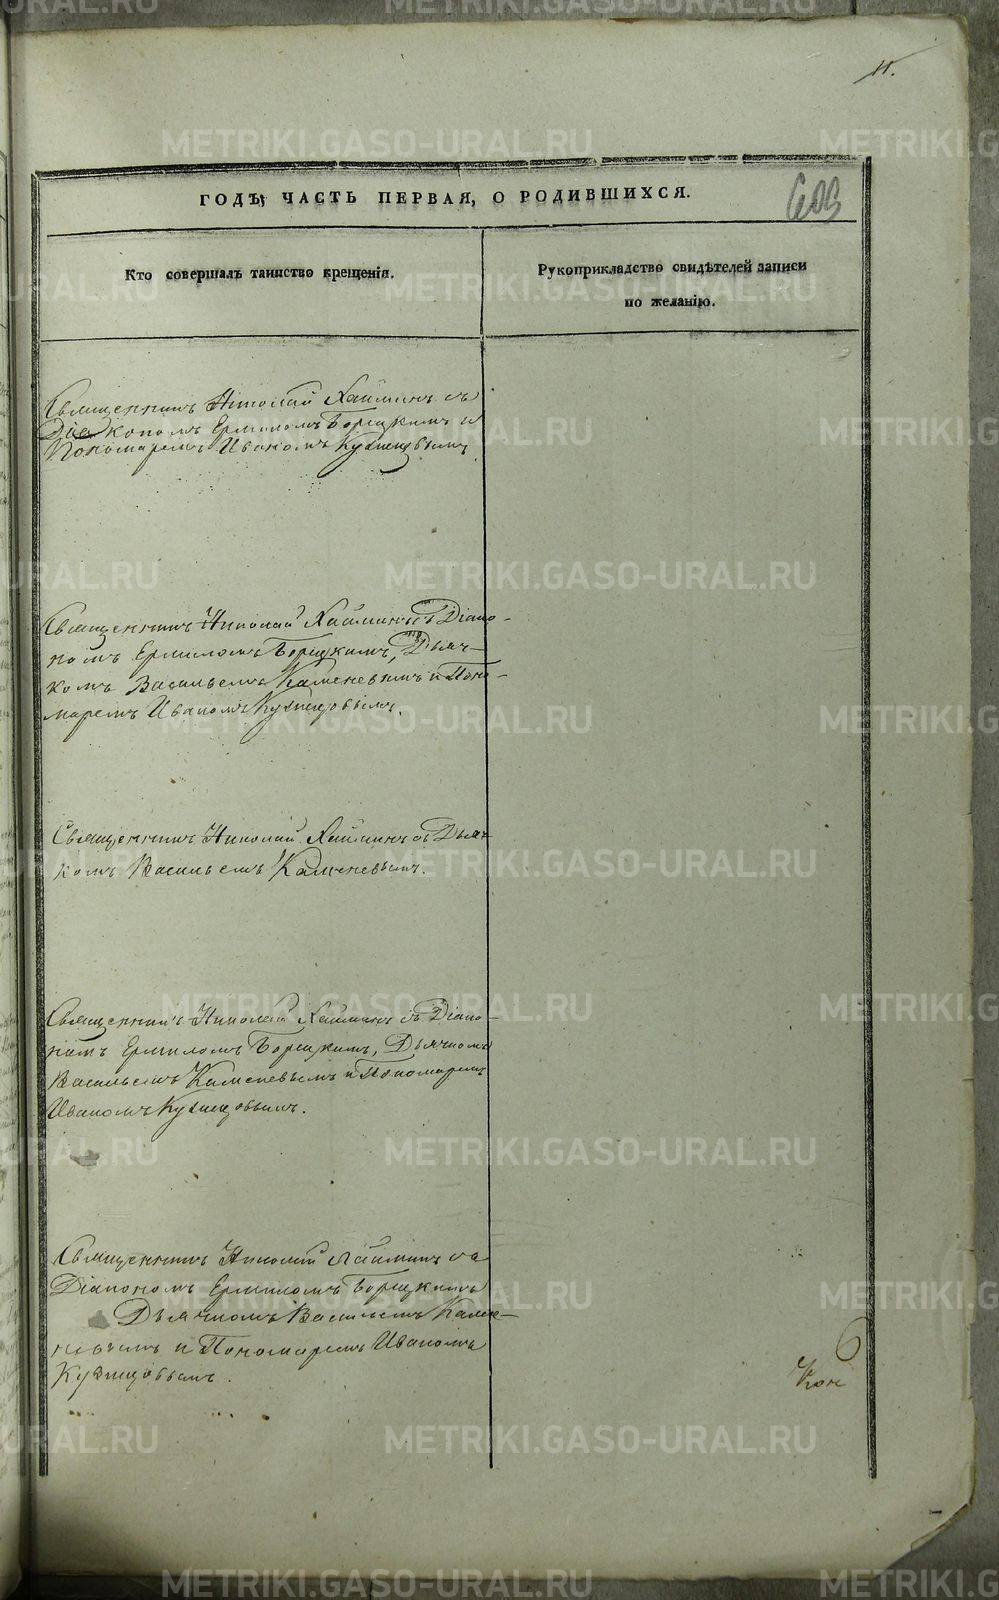 11.
ГОДѢ, ЧАСТЬ ПЕРВАЯ, О РОДИВШИХСЯ.
609
Кто совершалъ таинство крещенія.
Рукоприкладство свидѣтелей записи
по желанію.
Священникъ Николай Хайминъ съ
Діакономъ Ермиломъ Борецкимъ и
Пономаремъ Иваномъ Кузнецовымъ
Священникъ Николай Хайминъ съ Діако-
номъ Ермиломъ Борецкимъ, Дьяч-
комъ Васильемъ Каменевымъ и Поно-
маремъ Иваномъ Кузнецовымъ.
Священникъ Николай Хайминъ съ Дьяч-
комъ Васильемъ Каменевымъ.
Священникъ Николай Хайминъ съ Діако-
номъ Ермиломъ Борецкимъ, Дьячкомъ
Васильемъ Каменевымъ и Пономаремъ
Иваномъ Кузнецовымъ.
Священникъ Николай Хайминъ съ
Діакономъ Ермиломъ Борецкимъ
Дьячкомъ Васильемъ Каме-
невымъ и Пономаремъ Иваномъ
Кузнецовымъ.
METRIKI.GASO-URAL.RU